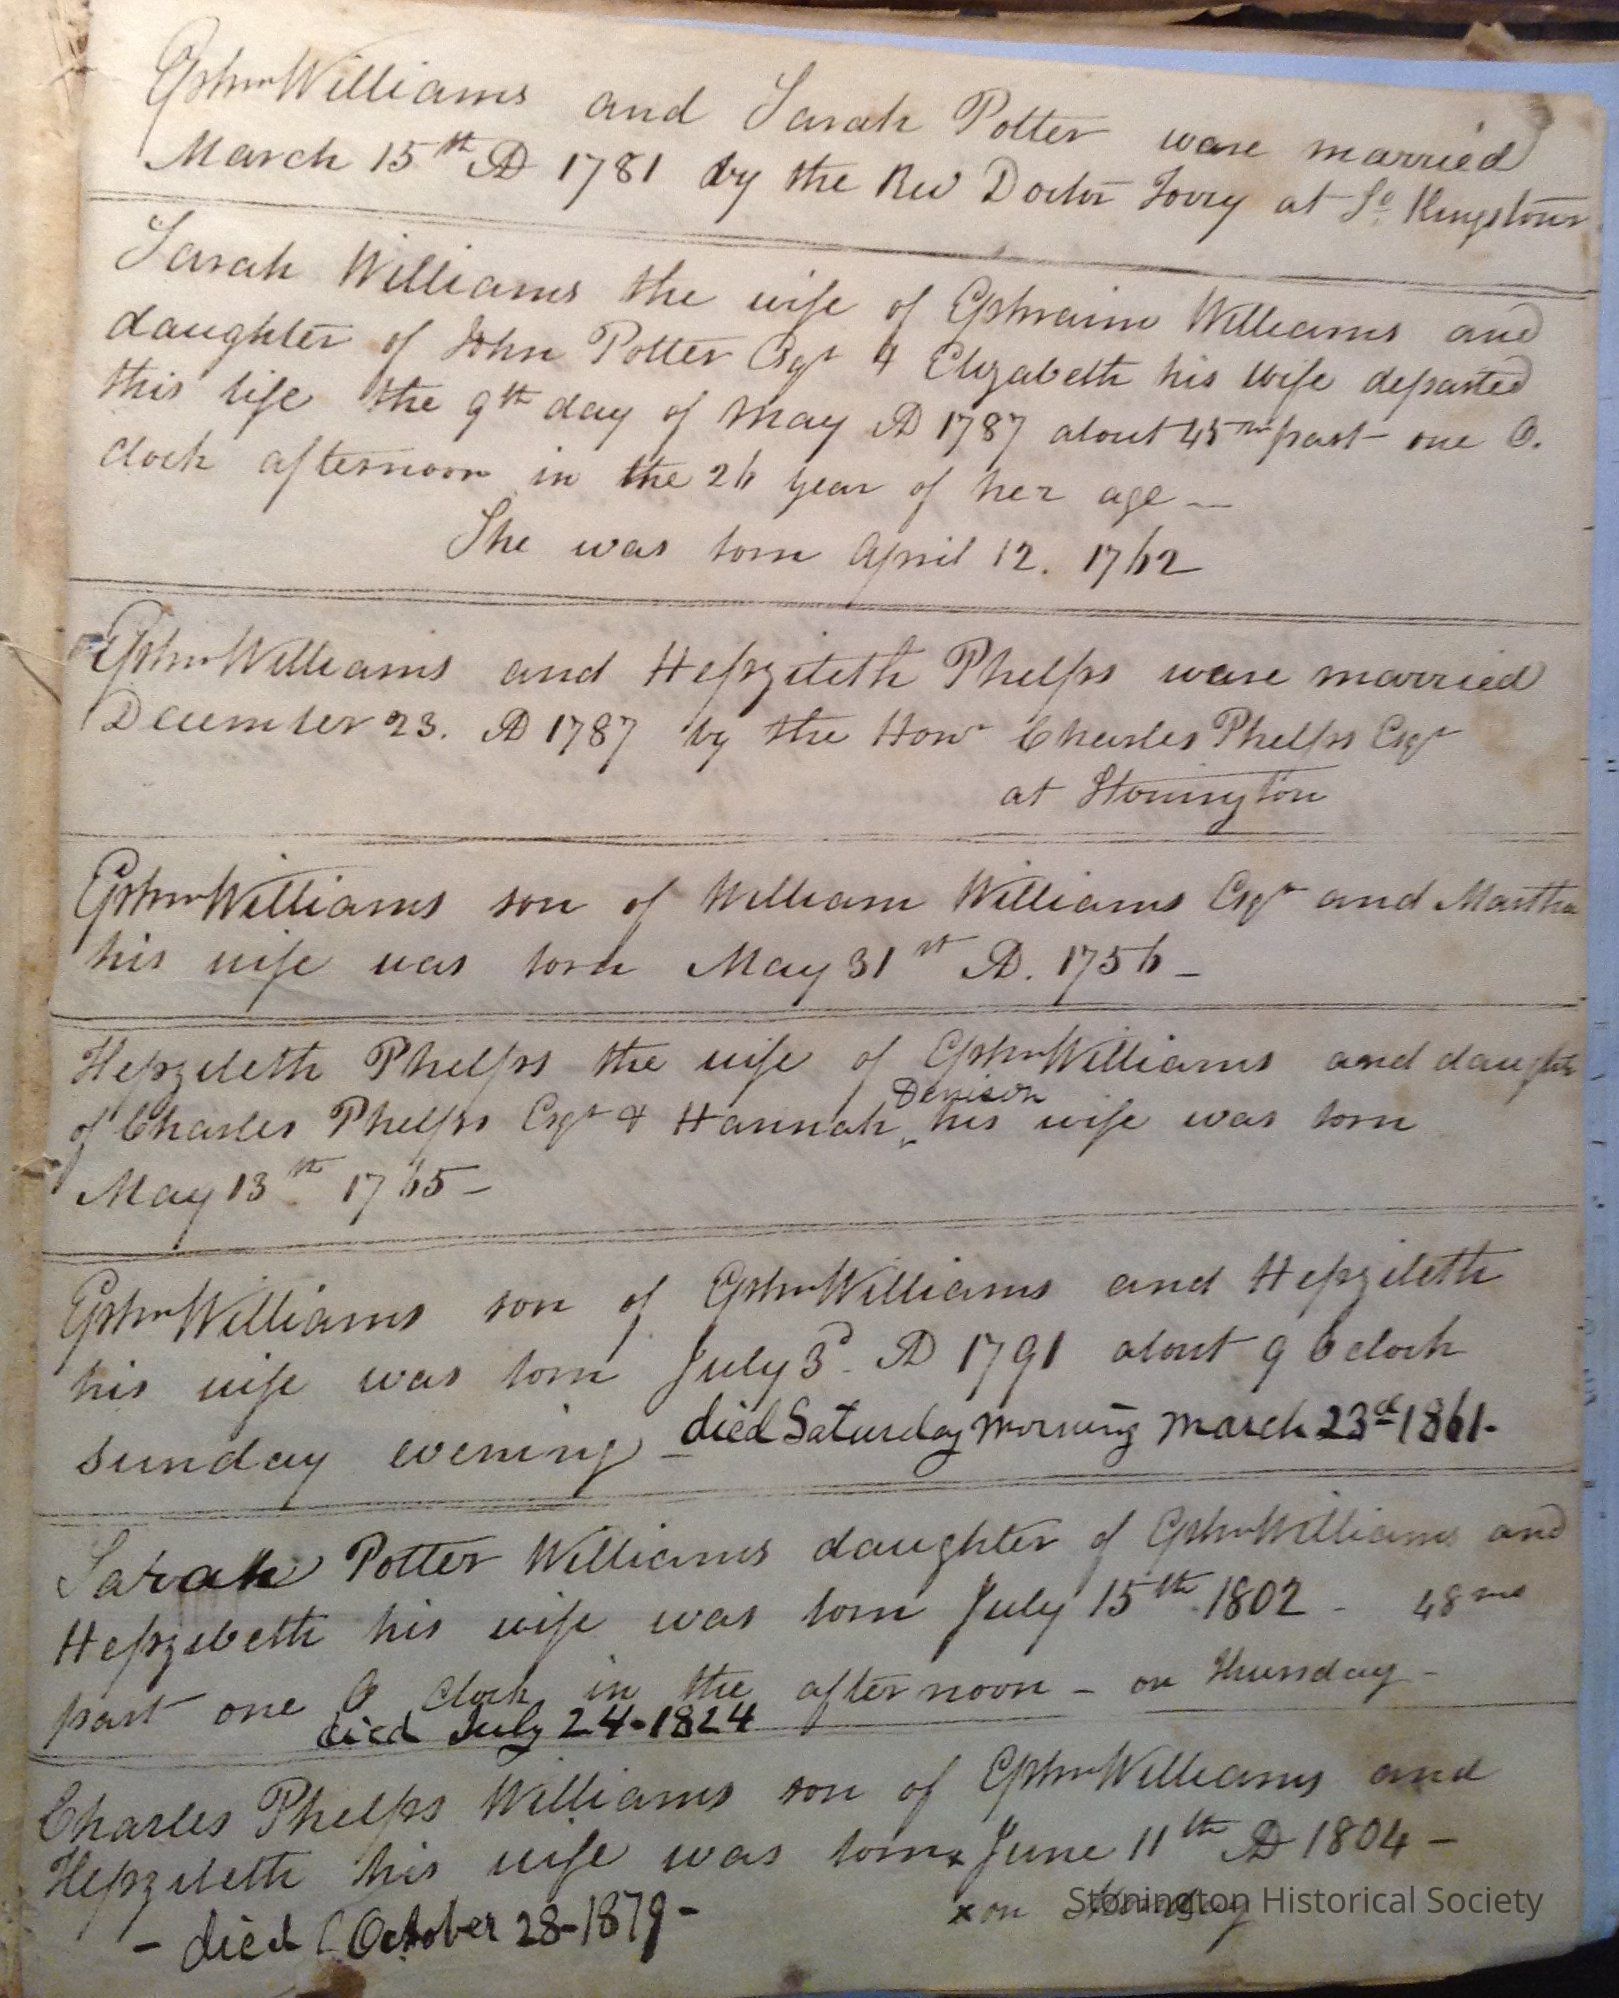 Ephm Williams and Sarah Potter ware married
March 15th AD 1781 by the Rev Doctor Torrey at So Kingstown
Sarah Williams the wife of Ephraim Williams and
daughter of John Potter Esqr & Elizabeth his wife departed
this life the 9th day of May AD 1787 about 45m past one O.
Clock afternoon in the 26 year of her age
She was born April 12. 1762
Ephm Williams and Hepzibeth Phelps ware married
December 23. AD 1787 by the Honr Charles Phelps Esqr
at Stonington
Ephm Williams son of William Williams Esqr and Martha
his wife was born May 31st AD. 1756 -
Hepzibeth Phelps the wife of Ephm Williams and daughter
Denison
of Charles Phelps Esqr & Hannah ‸ his wife was born
May 13th 1765 -
Ephm Williams son of Ephm Williams and Hepzibeth
his wife was born July 3d AD 1791 about 9 O clock
sunday evening - died Saturday Morning March 23d 1861-
Sarah Potter Williams daughter of Ephm Williams and
Hepzibeth his wife was born July 15th 1802 - 48
past one O Clock in the afternoon - on Thursday -
died July 24-1824
Charles Phelps Williams son of Ephm Williams and
Hepzibeth his wife was born x June 11th AD 1804 -
x on
- died October 28-1879 -
Stonington Historical Society